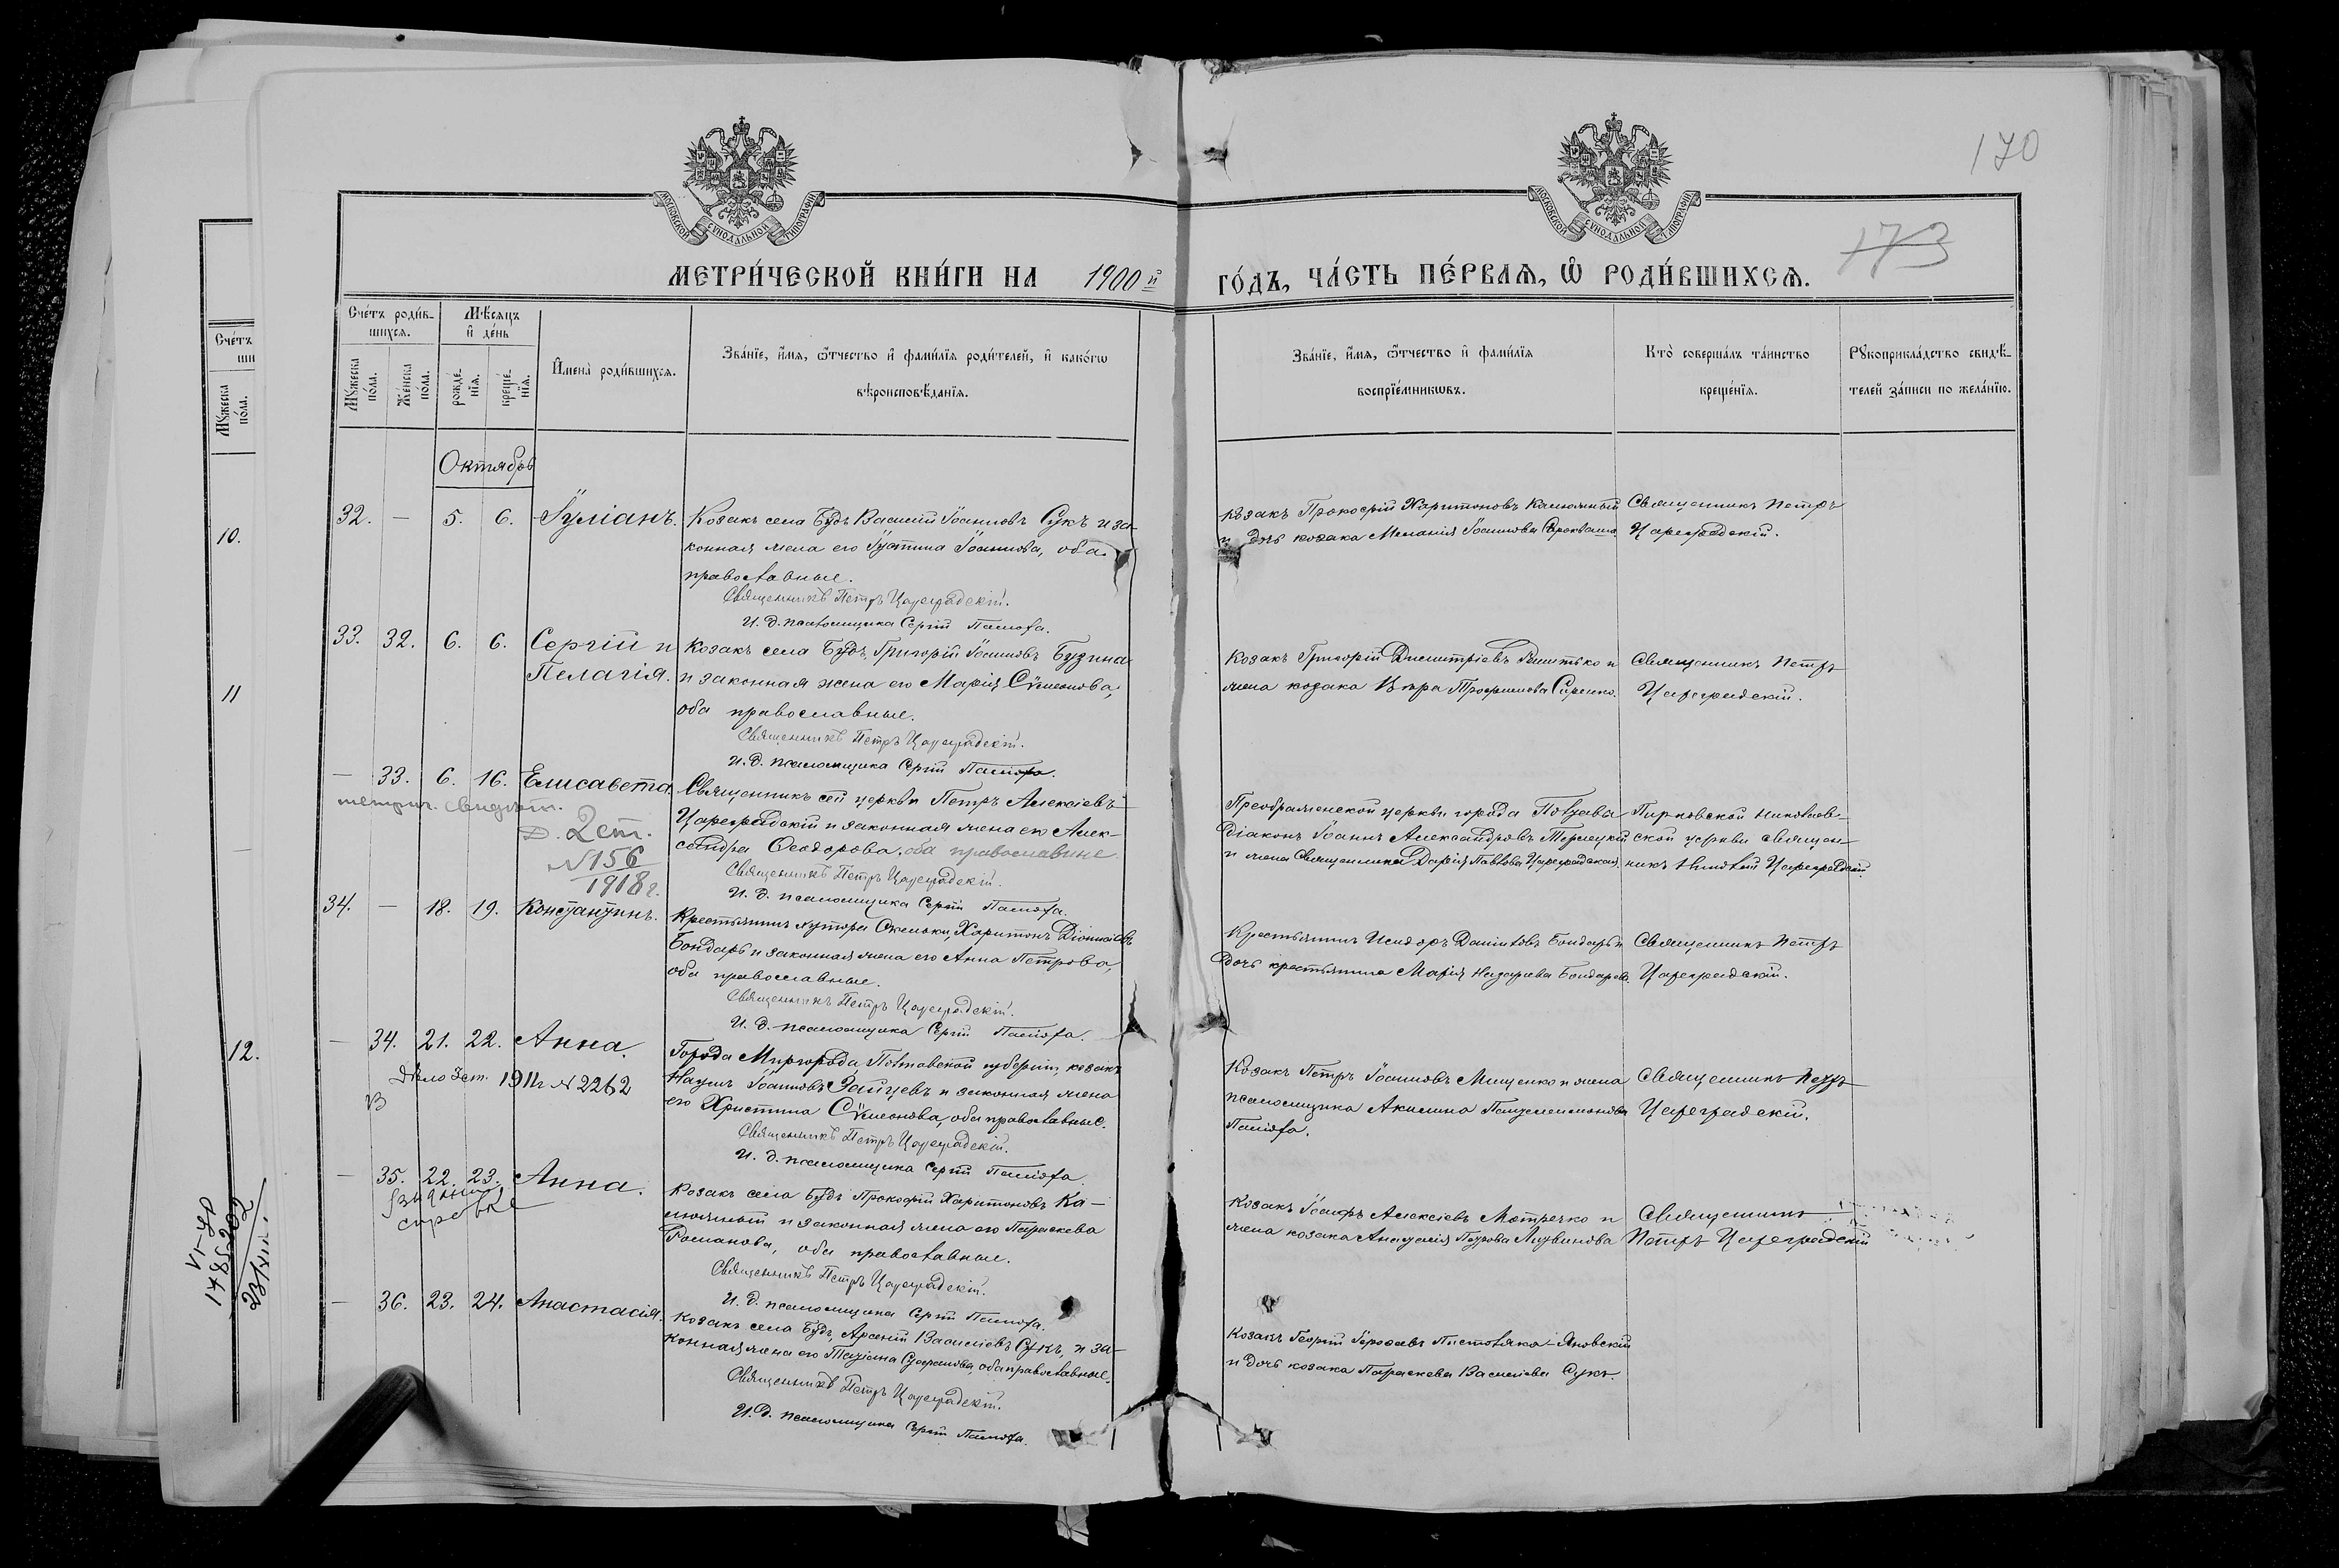 170
173
МОСКОВСКОЙ СѴНОДАЛЬНОЙ ТИПОГРАФІИ
МОСКОВСКОЙ СѴНОДАЛЬНОЙ ТИПОГРАФІИ
МЕТРИ́ЧЕСКОЙ КНИ́ГИ НА 1900 й ГО́ДЪ, ЧА́СТЬ ПЕ́РВАѦ, Ѡ РОДИ́ВШИХСѦ.
Сче́тъ роди́в-
шихсѧ.
Мꙋ́жеска по́ла.
Же́нска по́ла.
Мѣ́сѧцъ
и҆ де́нь
рожде́-
нїѧ.
креще́-
нїѧ.
И҆мена̀ роди́вшихсѧ.
Зва́нїе, и҆́мѧ, ѻ҆́тчество и҆ фами́лїѧ роди́телей, и҆ како́гѡ
вѣроисповѣ́данїѧ.
Зва́нїе, и҆́мѧ, ѻ҆́тчество и҆ фами́лїѧ
воспрїе́мникѡвъ.
Кто̀ соверша́лъ та́инство
креще́нїѧ.
Рꙋкоприкла́дство свидѣ́-
телей за́писи по жела́нїю.
Сче́тъ
ши
Мꙋ́жеска
по́ла.
10.
11
12.
Октябрь
32. — 5. 6. Іуліанъ.
Козакъ села Будъ Василій Іоанновъ Сукъ и за-
конная жена его Іустина Іоаннова, оба
православные.
Священникъ Петръ Цареградскій.
И. д. псаломщика Сергій
Козакъ Прокофій Харитоновъ Калюжный
и дочь козака Меланія Іоаннова
Священникъ Петръ
Цареградскій.
33. 32. 6. 6. Сергій и
Пелагія.
Козакъ села Будъ, Григорій Іоанновъ Бузина
и законная жена его Марія Сѵмеонова,
оба православные.
Священникъ Петръ Цареградскій.
И. д. псаломщика Сергій
Козакъ Григорій Димитріевъ и
жена козака Вѣра Трофимова Сиренко.
Священникъ Петръ
Цареградскій.
— 33. 6. 16. Елисавета.
метрич. свидѣт.
Д. 2 ст.
№ 156
1918 г.
Священникъ сей церкви Петръ Алексіевъ
Цареградскій и законная жена его Алек-
сандра Ѳеодорова, оба православные
Священникъ Петръ Цареградскій.
И. д. псаломщика Сергій
Преображенской церкви города Полтавы
Діаконъ Іоаннъ Александровъ Терлецкій
и жена Священника Дарія Павлова Цареградская.
Пирковской Николаев-
ской церкви священ-
никъ Цареградскій.
34. — 18. 19. Константинъ.
Крестьянинъ хутора Харитонъ Діонисіевъ
Бондарь и законная жена его Анна Петрова,
оба православные.
Священникъ Петръ Цареградскій.
И. д. псаломщика Сергій
Крестьянинъ Исидоръ Даніиловъ Бондарь и
дочь крестьянина Марія Назарова Бондарева.
Священникъ Петръ
Цареградскій.
— 34. 21. 22. Анна.
Дѣло 3 ст. 1911 г № 2262
В
Города Миргорода Полтавской губерніи, козакъ
Наумъ Іоанновъ Зайцевъ и законная жена
его Христина Сѵмеонова, оба православные.
Священникъ Петръ Цареградскій.
И. д. псаломщика Сергій
Козакъ Петръ Іоанновъ Мищенко и жена
псаломщика Акилина Пантелеимонова
Священникъ Петръ
Цареградскій.
— 35. 22. 23. Анна.
справке
Козакъ села Будъ Прокофій Харитоновъ Ка-
люжный и законная жена его Параскева
Романова, оба православные.
Священникъ Петръ Цареградскій.
И. д. псаломщика Сергій
Козакъ Іосифъ Алексіевъ Мотречко и
жена козака Анастасія Петрова Литвинова
Священникъ
Петръ Цареградскій
— 36. 23. 24. Анастасія.
Козакъ села Будъ, Арсеній Василіевъ Сукъ, и за-
конная жена его Татіана Стефанова, оба православные.
Священникъ Петръ Цареградскій.
И. д. псаломщика Сергій
Козакъ Георгій Пистовяка-Яновскій
и дочь козака Параскева Василіева Сукъ.